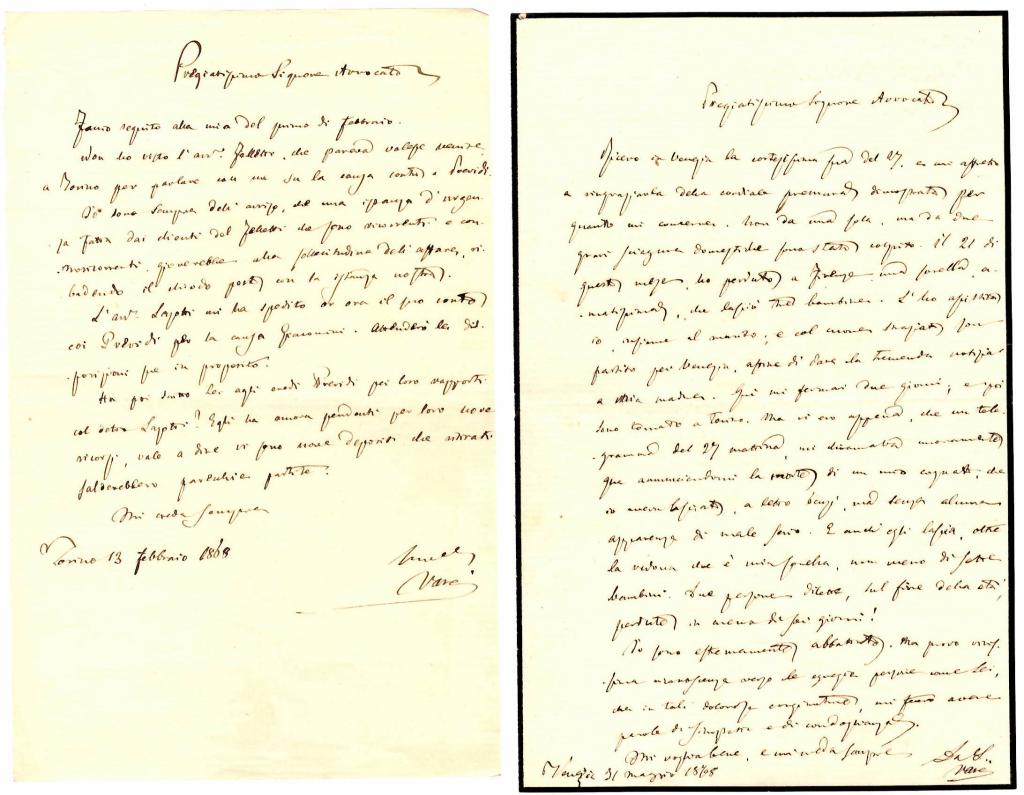 Pregiatissimo Signore Avvocato
Faccio seguito alla mia del primo di febbraio.
Non ho visto l'avv. che pareva volesse venire
a Torino per parlare con me su la causa contro i Previdi.
Io sono sempre dell'avviso, che una istanza d'urgen-
za fatta dai clienti del da sono ricorrenti e con-
troricorrenti, gioverebbe alla sollecitudine dell'affare, ri-
badendo il chiodo posto con la istanza nostra.
L'avv. mi ha spedito or ora il suo conto
coi Previdi per la causa Giacomini. Attenderò le dis-
posizioni sue in proposito.
Ha poi scritto Lei agli eredi Previdi pei loro rapporti
col? Egli ha ancora pendenti per loro nove
ricorsi, vale a dire vi sono nove depositi che ritirati
salderebbero parecchie partite.
Mi creda sempre
Torino 13 febbraio 1868
Varè
Pregiatissimo Signore Avvocato
Ricevo in Venezia la cortesissima sua del 27, e mi affretto
a ringraziarla della cordiale premura dimostrata per
quanto mi concerne. Non da una sola, ma da due
gravi sciagure domestiche sono stato colpito. Il 21 di
questo mese, ho perduto a Firenze una sorella, a-
matissima, che lasciò tre bambine. L'ho assistita
io, insieme al marito; e col cuore straziato son
partito per Venezia, affine di dare la tremenda notizia
a mia madre. Qui mi fermai due giorni; e poi
sono tornato a Torino. Ma vi ero appena, che un tele-
gramma del 27 mattina, mi richiamava nuovamente
qua annunciandomi la morte di un mio cognato, che
io aveva lasciato, a letto bensì, ma senza alcuna
apparenza di male serio. E anch'egli lascia, oltre
la vedova che è mia sorella, non meno di sette
bambini. Due persone dilette, sul fiore della età,
perdute in meno di sei giorni!
Io sono estremamente abbattuto. Ma provo vivis-
sima riconoscenza verso le egregie persone come Lei,
che in tali dolorose congiunture, mi fanno avere
parole di simpatia e di condoglianza.
Mi voglia bene, e mi creda sempre
Venezia 31 maggio 1868
Varè